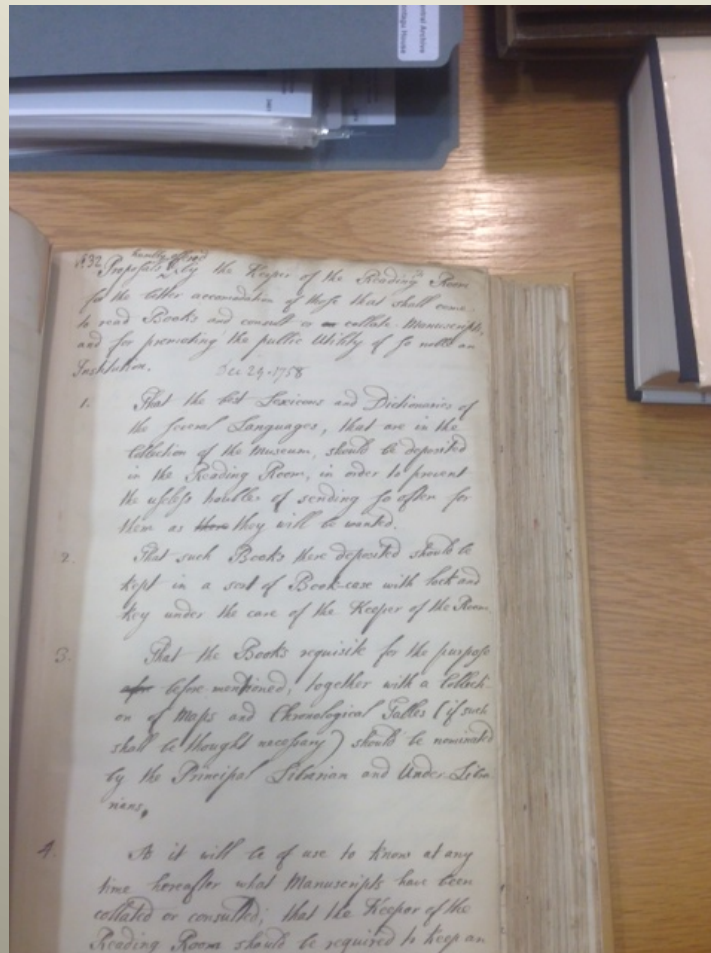 entral Archive
ontagu House
N.32.
humbly offered
Proposals by the Keeper of the Reading Room
for the better accomodation of those that shall come
to read Books and consult or collate Manuscripts,
and for promoting the public Utility of so noble an
Institution. Dec 29. 1758
1. That the best Lexicons and Dictionaries of
the several Languages, that are in the
Collection of the Museum, should be deposited
in the Reading Room, in order to prevent
the useless trouble of sending so often for
them as they will be wanted.
2. That such Books there deposited should be
kept in a sort of Book-case with lock and
key under the care of the Keeper of the Room.
3. That the Books requisite for the purpose
before mentioned, together with a Collecti-
on of Maps and Chronological Tables (if such
shall be thought necessary) should be nominated
by the Principal Librarian and Under-Libra
rians.
4. As it will be of use to know at any
time hereafter what Manuscripts have been
collated or consulted; that the Keeper of the
Reading Room should be required to keep an